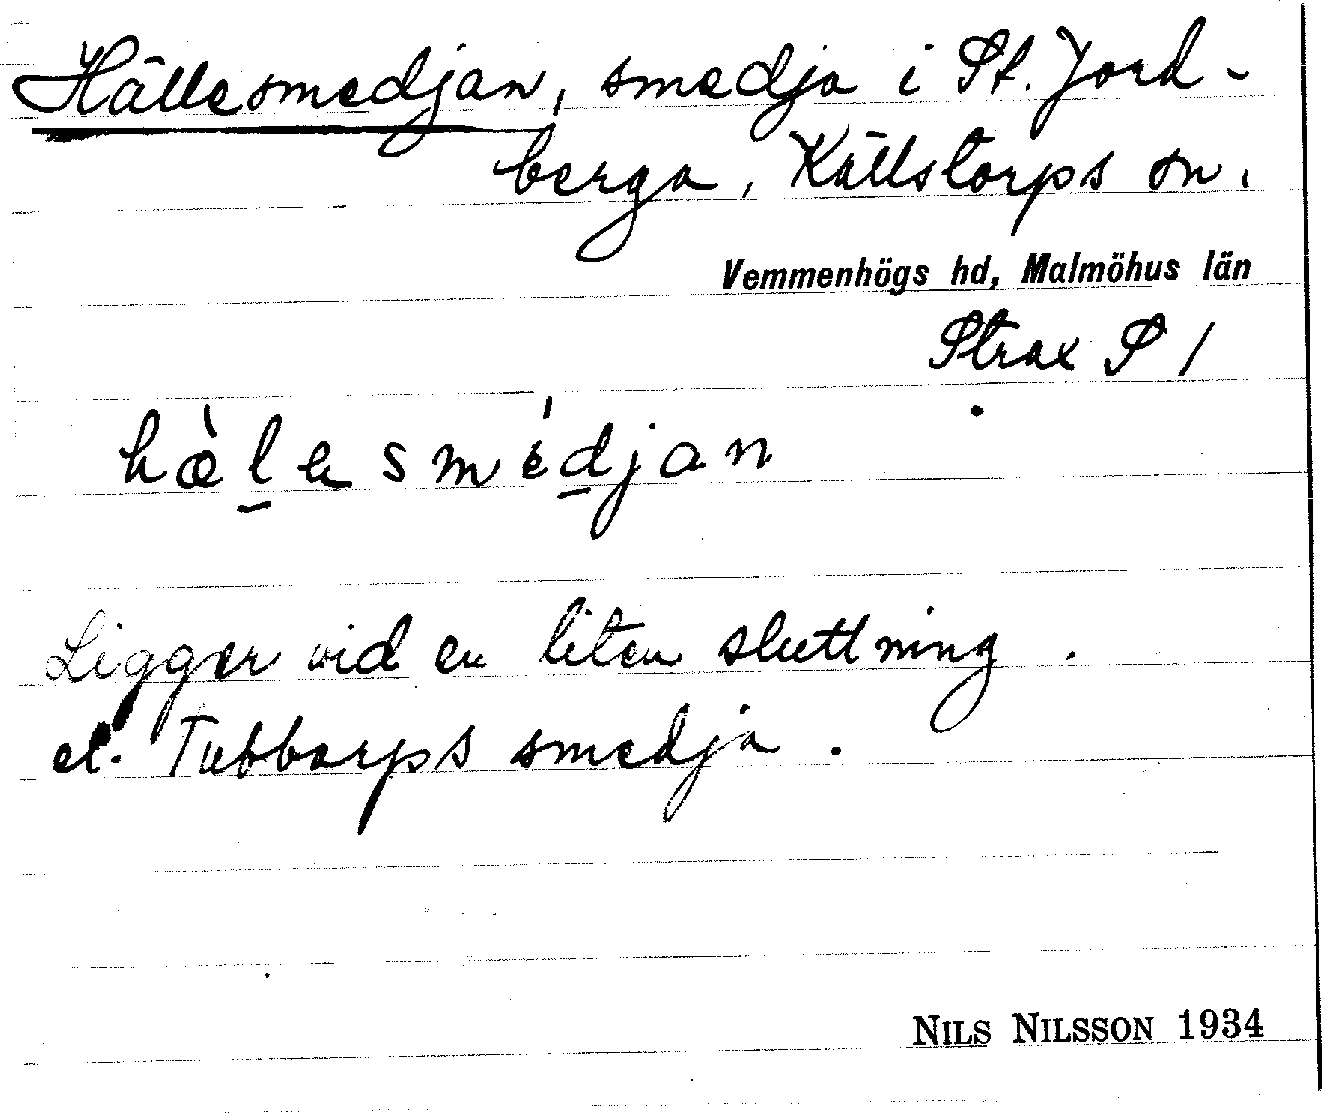 Hällesmedjan, smedja i St. Jord-
berga, Källstorps sn.
Vemmenhögs hd, Malmöhus län
Strax S /
hæ̀lesmédjan
Ligger vid en liten sluttning.
el. Tubbarps smedja.
NILS NILSSON 1934